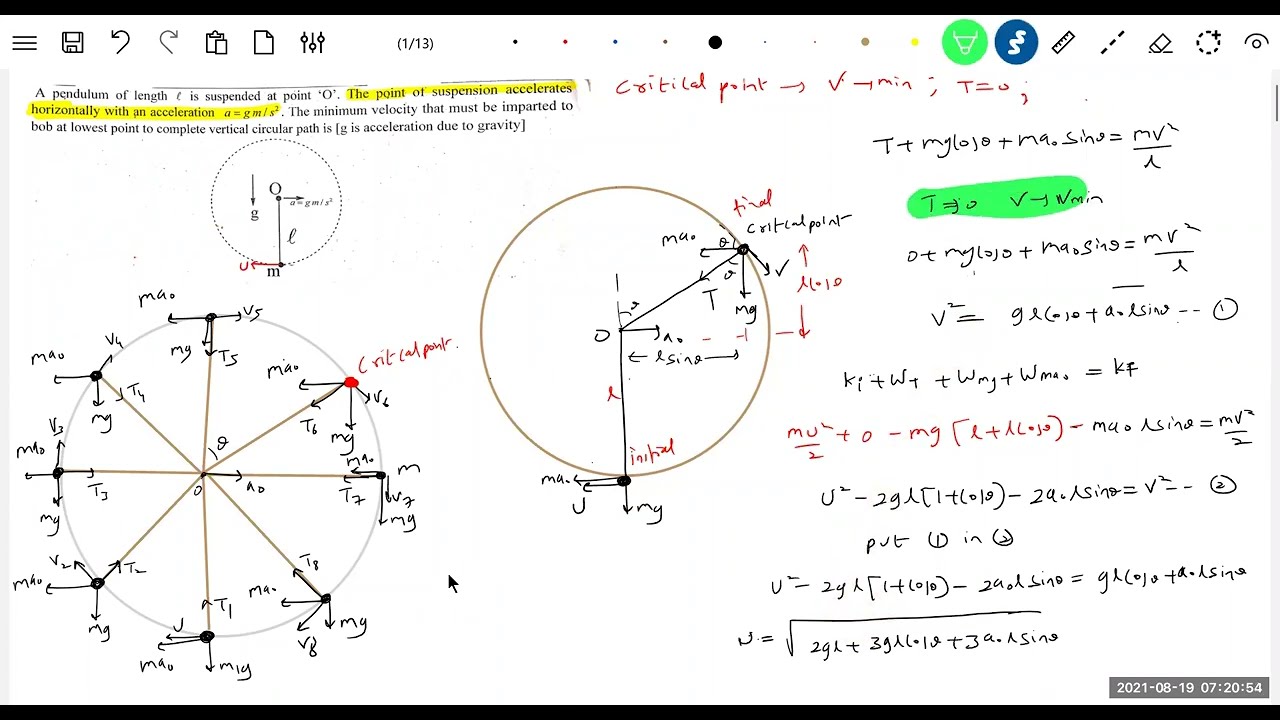 (1/13)
A pendulum of length ℓ is suspended at point 'O'. The point of suspension accelerates
horizontally with an acceleration a = g m/s². The minimum velocity that must be imparted to
bob at lowest point to complete vertical circular path is [g is acceleration due to gravity]
O
a = g m/s²
g
ℓ
U
m
Critical point → V → min ; T=0 ;
T + mg cosθ + ma₀ sinθ = mv²/l
T ⇒ 0 V → Vmin
0 + mg cosθ + ma₀ sinθ = mv²/l
V² = gl cosθ + a₀ l sinθ -- ①
Ki + WT + Wmg + Wma₀ = KF
mu²/2 + 0 - mg [l + l cosθ) - ma₀ l sinθ = mv²/2
U² - 2gl [1+cosθ) - 2a₀ l sinθ = V² -- ②
put ① in ②
U² - 2gl [1+cosθ) - 2a₀ l sinθ = gl cosθ + a₀ l sinθ
u = √ 2gl + 3gl cosθ + 3a₀ l sinθ
final
critcal point
ma₀
θ
θ
V
T
mg
l cosθ
θ
O
a₀
l sinθ
l
initial
ma₀
U
mg
ma₀
V5
mg
T5
V4
ma₀
T4
mg
Critcal point.
ma₀
V6
T6
mg
θ
V3
ma₀
T3
mg
O
a₀
ma₀
m
T7
V7
mg
V2
T2
ma₀
mg
T8
ma₀
V8
mg
T1
U
ma₀
m1g
2021-08-19 07:20:54